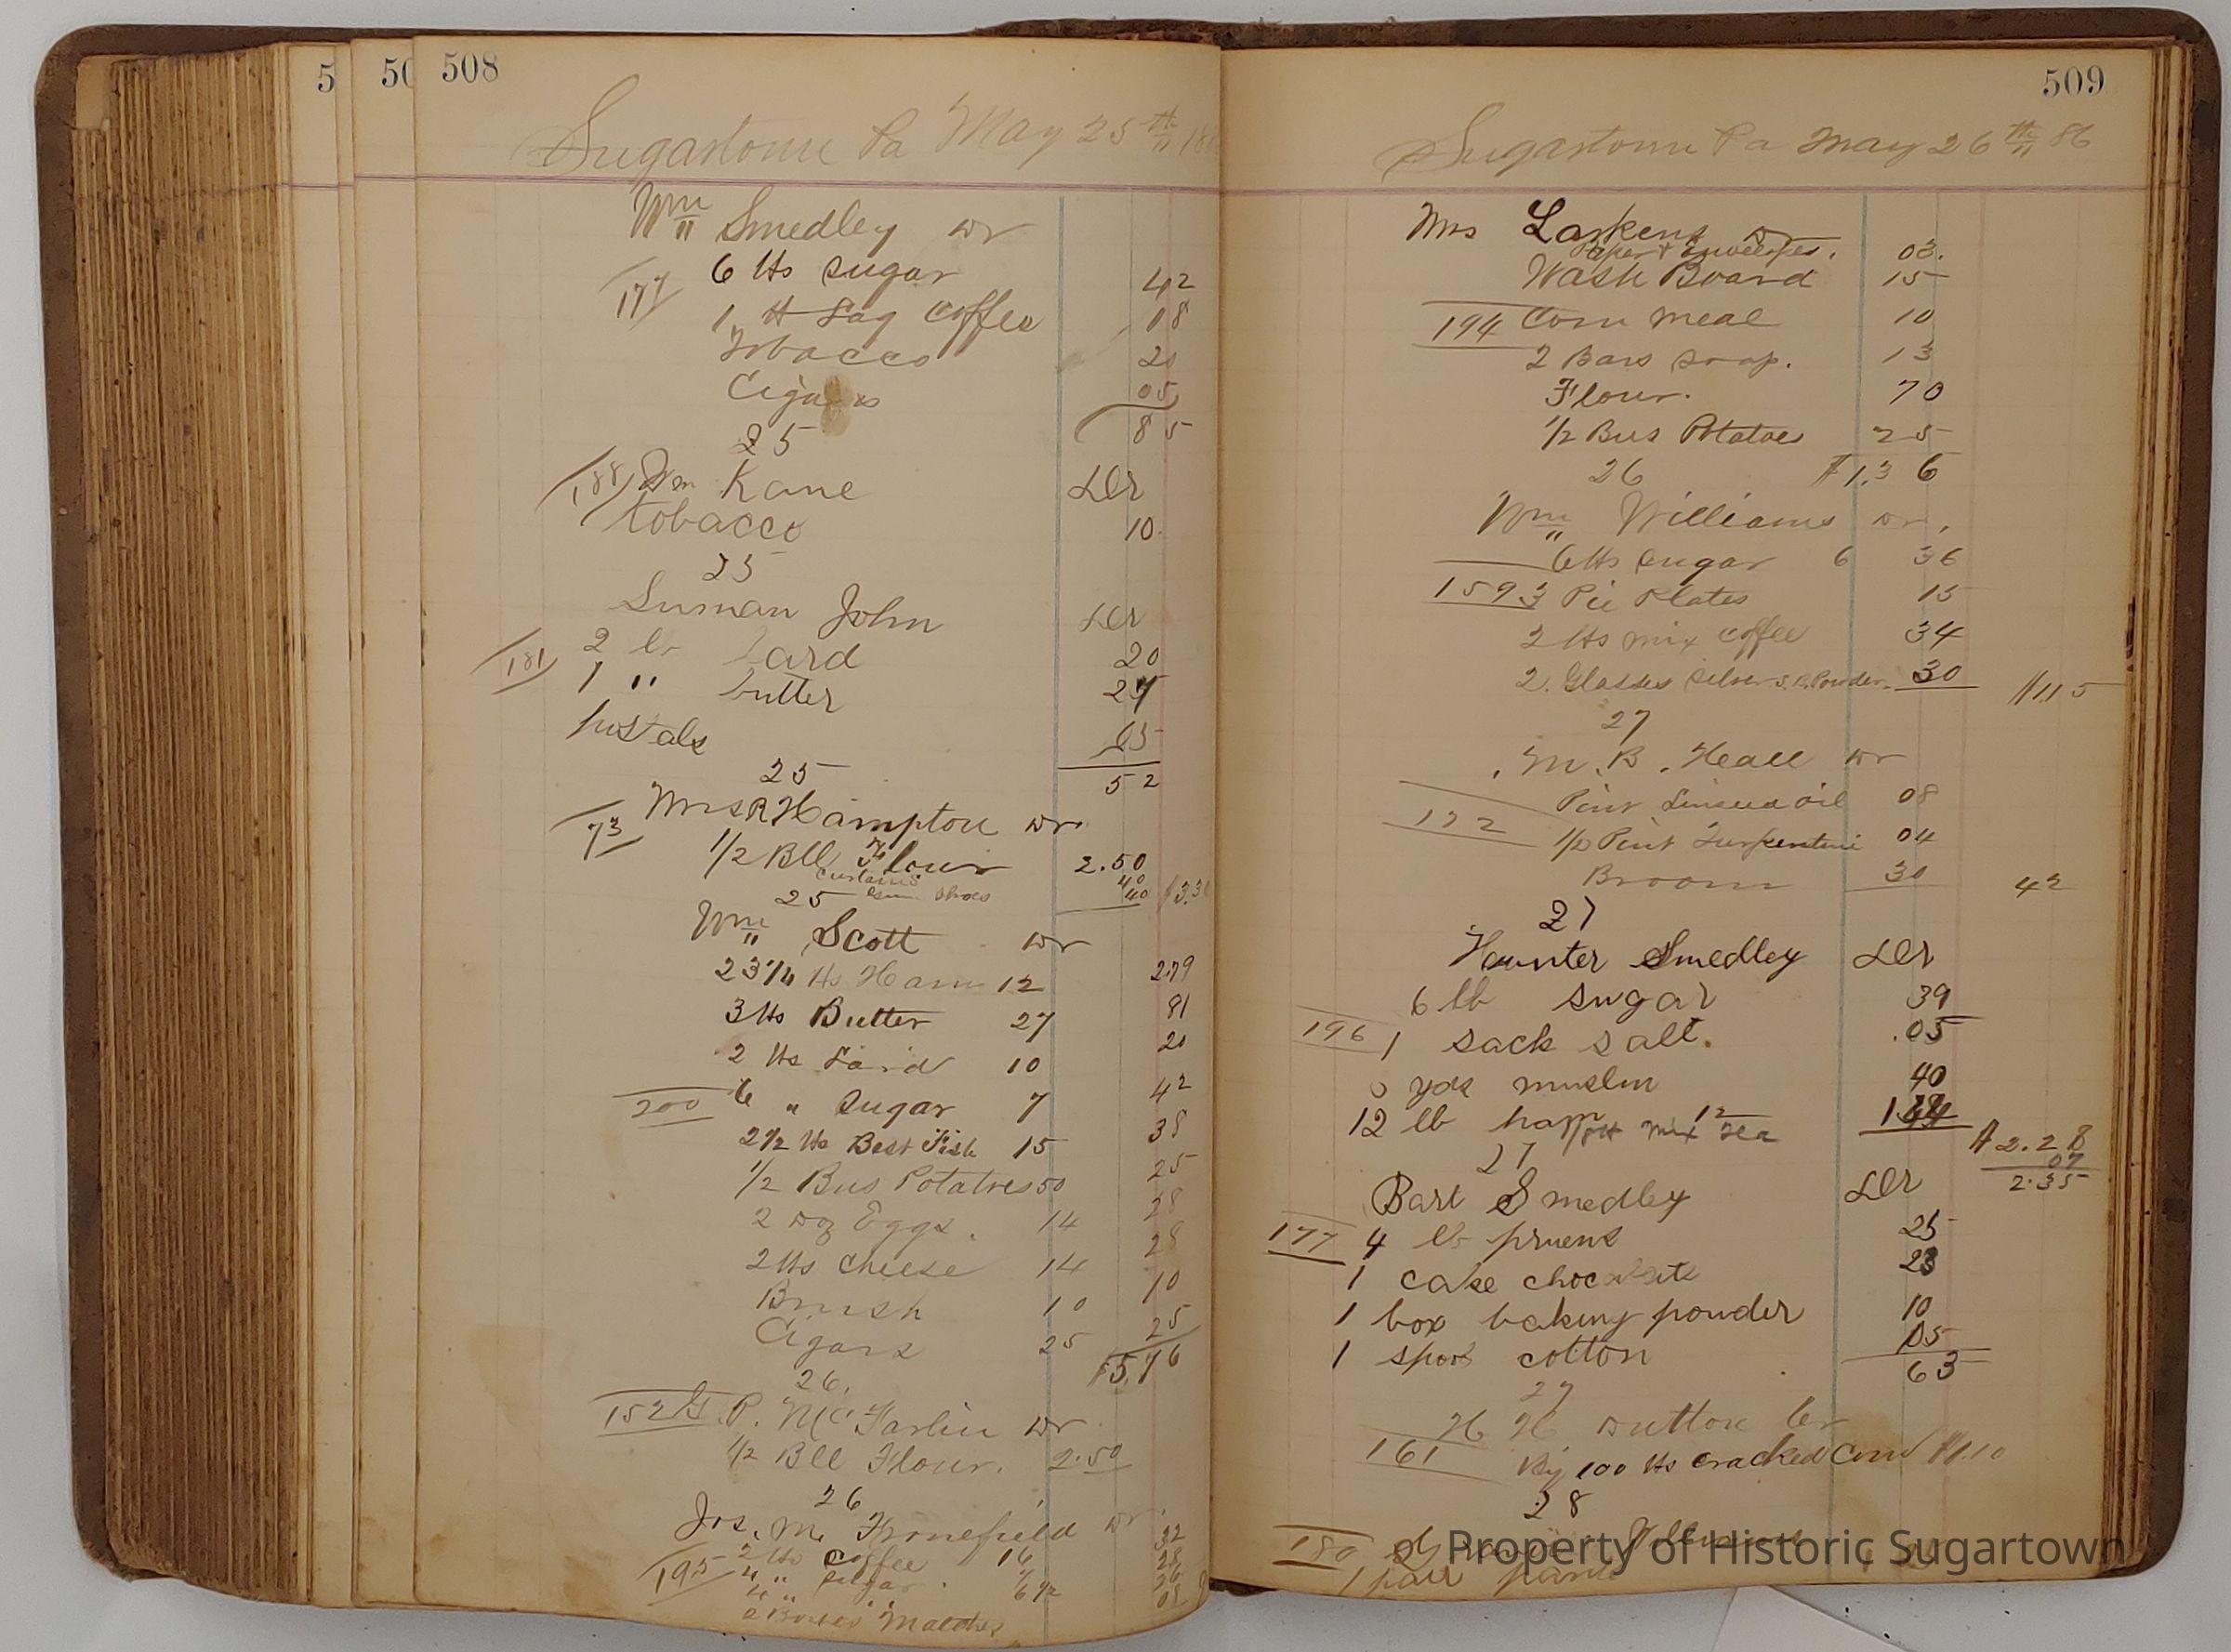 5
50
508
Sugartown Pa May 25th 188
Wm Smedley Dr
6 lbs sugar 42
177
1 lb Lag Coffee 18
Tobacco 20
Cigars 05
85
25
188 Wm Kane Dr
tobacco 10
25
Suman John Dr
2 lb Lard 20
181
1 " butter 27
postals 05
25 52
Mrs R Hampton Dr
73
1/2 Bll Flour 2.50
Curtains 40
25 Gum Shoes 40 $3.30
Wm Scott Dr
23 1/4 lbs Ham 12 2.79
3 lbs Butter 27 81
2 lbs Lard 10 20
200 6 " Sugar 7 42
2 1/2 lbs Best Fish 15 38
1/2 Bus Potatoes 50 25
2 Doz Eggs. 14 28
2 lbs Cheese 14 28
Brush 10 10
Cigars 25 25
$5.76
26.
152 P. McFarlin Dr
1/2 Bll Flour. 2.50
26
Jos. M. Fronefield Dr.
2 lbs coffee 16 32
195 4 " sugar 7 28
4 " " 6 1/2 26
2 Boxes Matches
509
Sugartown Pa May 26th 86
Mrs Larkens Dr
Paper & Envelopes. 03.
Wash Board 15
194 Corn Meal 10
2 Bars soap. 13
Flour. 70
1/2 Bus Potatoes 25
26 $1.36
Wm Williams Dr.
6 lbs Sugar 6 36
159 3 Pie Plates 15
2 lbs mix coffee 34
2. Glasses Silver S. P. Powder. 30 $1.15
27
M. B. Heall Dr
Pint Linseed oil 08
172
1/2 Pint Turpentine 04
Broom 30 42
27
Hunter Smedley Dr
6 lb sugar 39
196 1 sack salt. .05
yds muslin 40
12 lb mix Tea 12 1.44
$2.28
07
2.35
27
Bart Smedley Dr
177 4 lb pruens 25
1 cake chocolate 23
1 box baking powder 10
1 spool cotton 05
63
27
H H Dutton Cr
161 By 100 lbs cracked Corn $1.10
28
180
1 pair pants
Property of Historic Sugartown